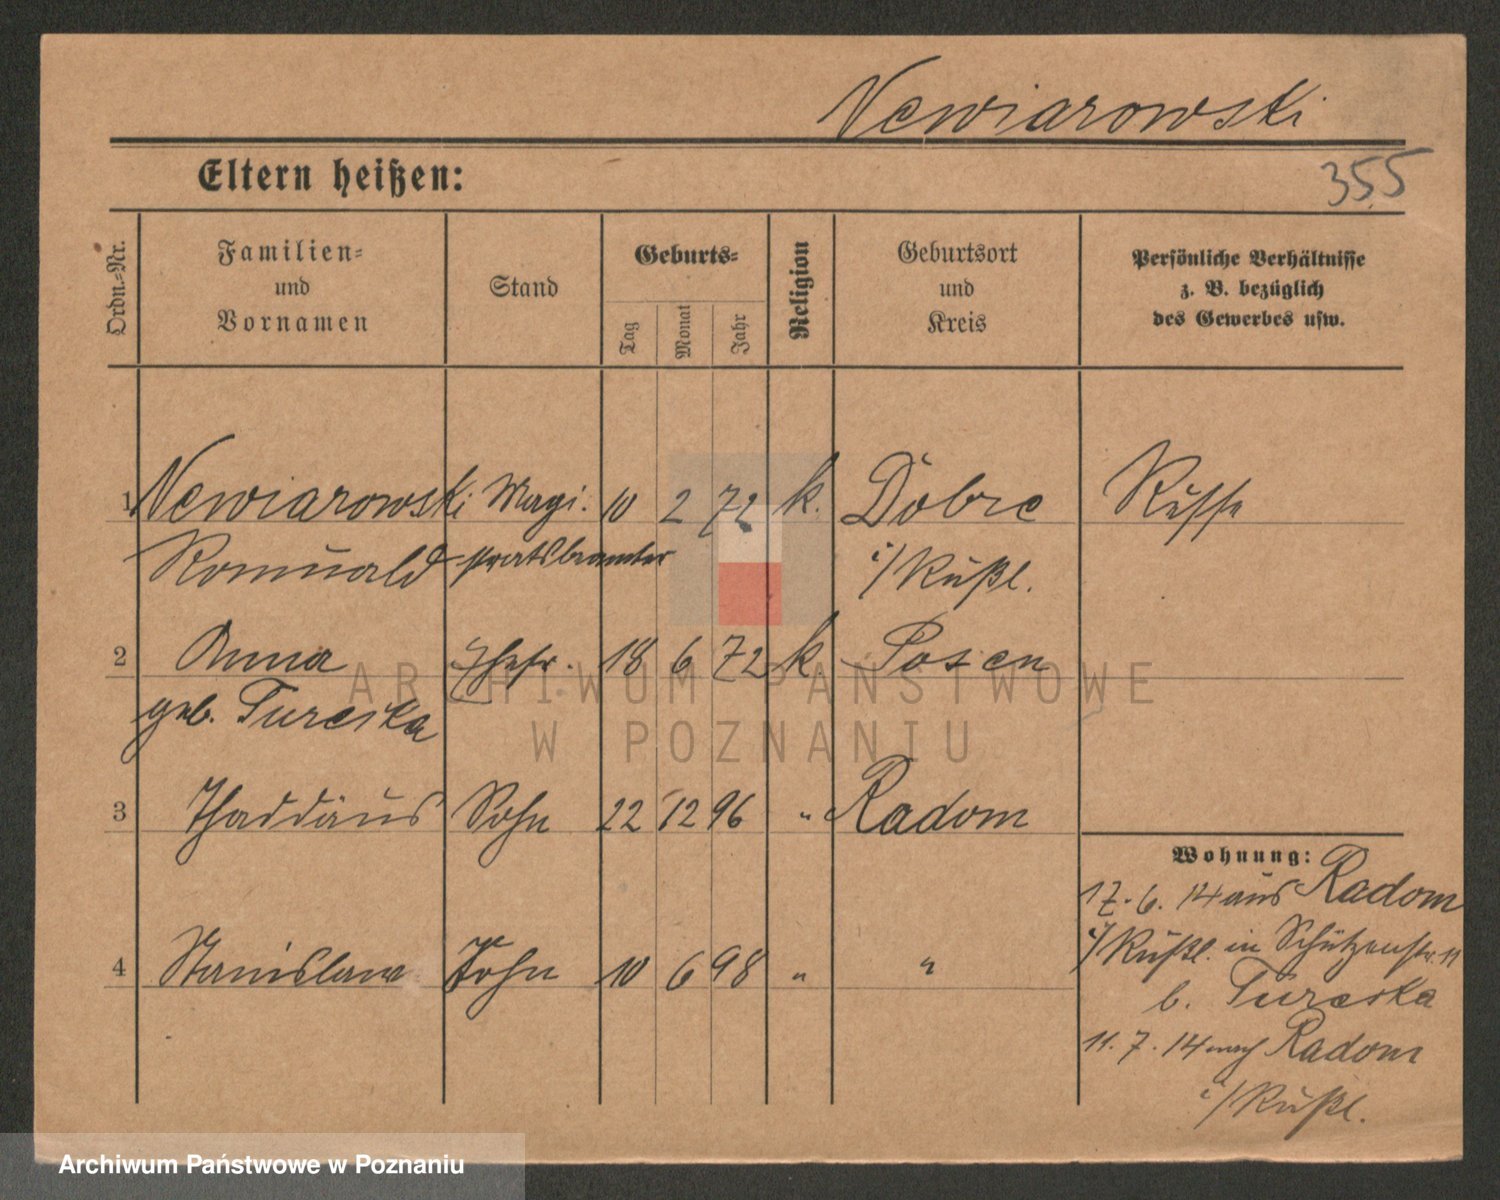 Newiarowski
Eltern heißen:
355
Ordn.-Nr.
Familien-
und
Vornamen
Stand
Geburts-
Tag
Monat
Jahr
Religion
Geburtsort
und
Kreis
Persönliche Verhältnisse
z. B. bezüglich
des Gewerbes usw.
1 Newiarowski Magi- 10 2 72 k. Dobre Russe
Romuald stratsbeamter i/Rußl.
2 Anna Ehefr. 18 6 72 k. Posen
geb. Turcska
3 Thaddäus Sohn 22 12 96 " Radom
4 Stanislaw Sohn 10 6 98 " "
Wohnung:
17. 6. 14 aus Radom
i/Rußl. in Schützenstr. 11
b. Turcska
11. 7. 14 nach Radom
i/Rußl.
ARCHIWUM PAŃSTWOWE
W POZNANIU
Archiwum Państwowe w Poznaniu